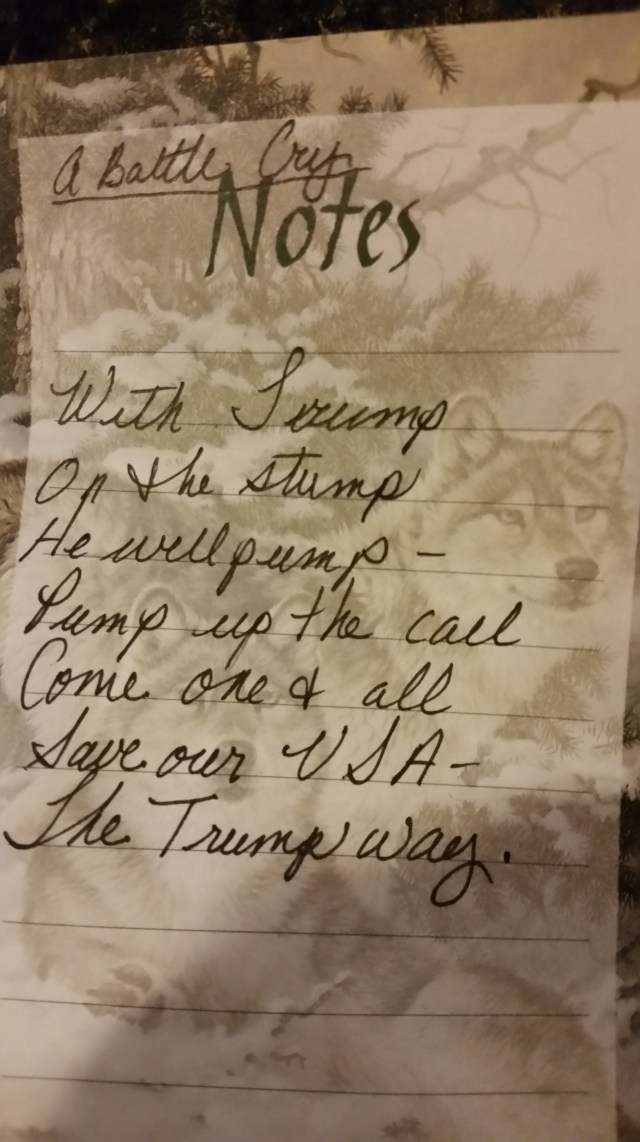 A Battle Cry
Notes
With Trump
On the stump
He will pump –
Pump up the call
Come one & all
Save our USA –
The Trump way.